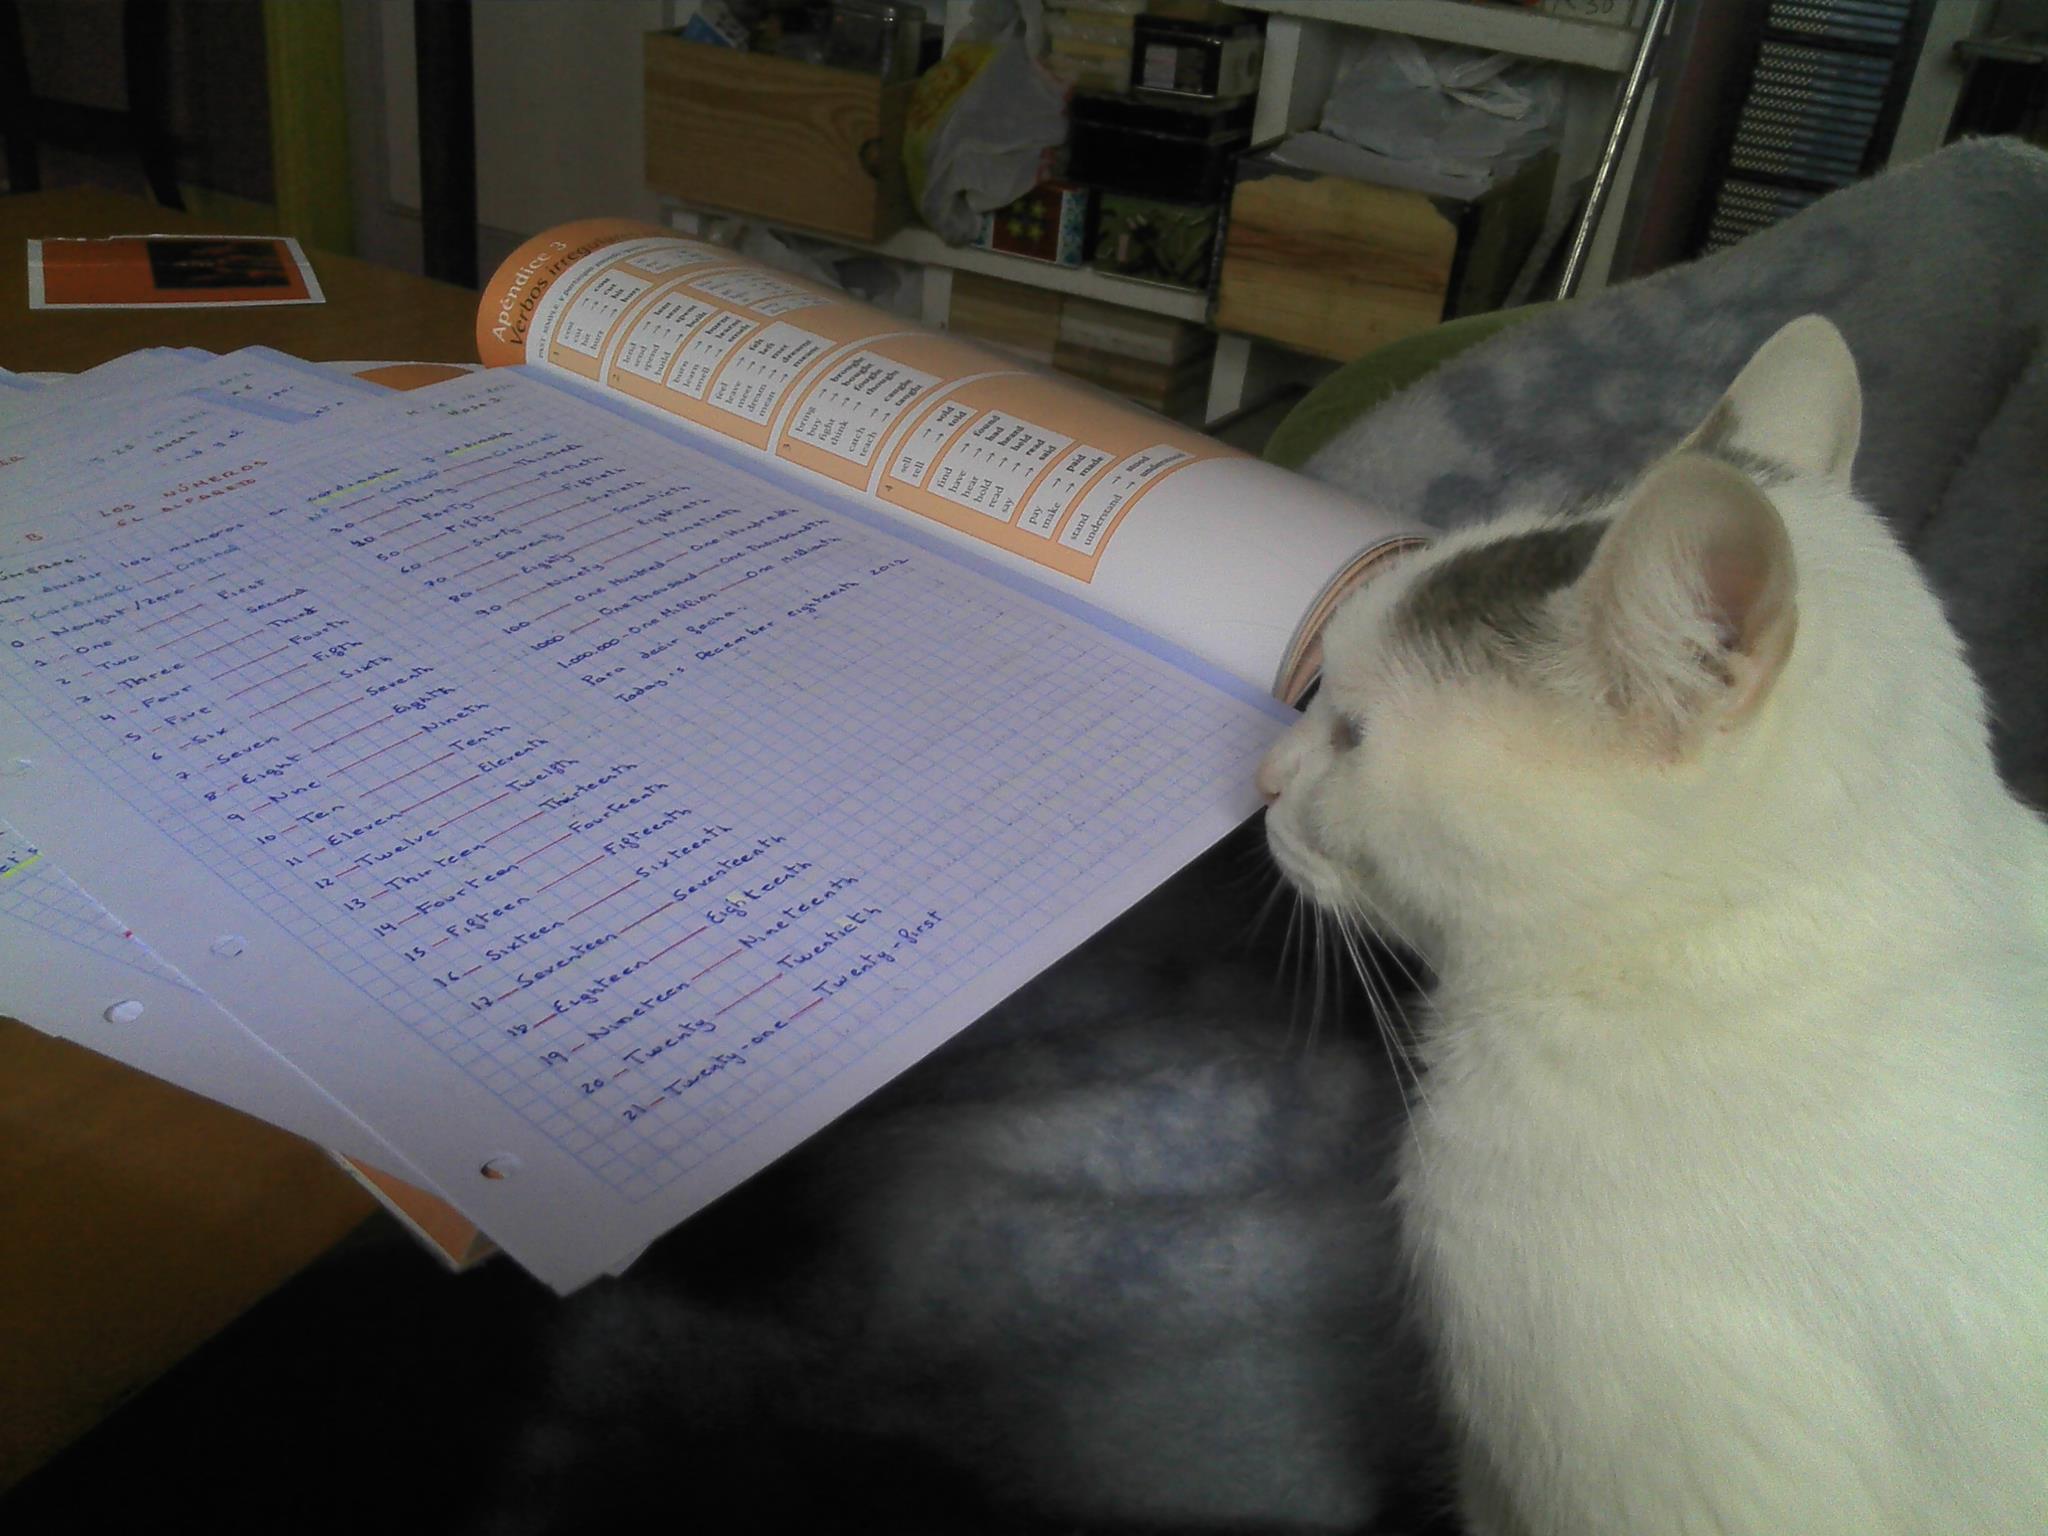 Apéndice 3
Verbos irregulares
PAST SIMPLE y participio
1
cost → cost
cut → cut
hit → hit
hurt → hurt
2
lend → lent
send → sent
spend → spent
build → built
burn → burnt
learn → learnt
smell → smelt
feel → felt
leave → left
meet → met
dream → dreamt
mean → meant
3
bring → brought
buy → bought
fight → fought
think → thought
catch → caught
teach → taught
4
sell → sold
tell → told
find → found
have → had
hear → heard
hold → held
read → read
say → said
pay → paid
make → made
stand → stood
understand → understood
LOS NÚMEROS
EL ALFABETO
B
NÚMEROS:
dividir los numeros en cardinales y ordinal
Cardinal Ordinal
0 - Nought/Zero
1 - One First
2 - Two Second
3 - Three Third
4 - Four Fourth
5 - Five Fifth
6 - Six Sixth
7 - Seven Seventh
8 - Eight Eighth
9 - Nine Nineth
10 - Ten Tenth
11 - Eleven Eleventh
12 - Twelve Twelfth
13 - Thirteen Thirteenth
14 - Fourteen Fourteenth
15 - Fifteen Fifteenth
16 - Sixteen Sixteenth
17 - Seventeen Seventeenth
18 - Eighteen Eighteenth
19 - Nineteen Nineteenth
20 - Twenty Twentieth
21 - Twenty-one Twenty-first
Nº Cardinal Ordinal
30 Thirty Thirtieth
40 Forty Fortieth
50 Fifty Fiftieth
60 Sixty Sixtieth
70 Seventy Seventieth
80 Eighty Eightieth
90 Ninety Ninetieth
100 One Hundred One Hundredth
1000 One Thousand One Thousandth
1.000.000 - One Million One Millionth
Para decir fecha:
Today is December eighteenth 2012